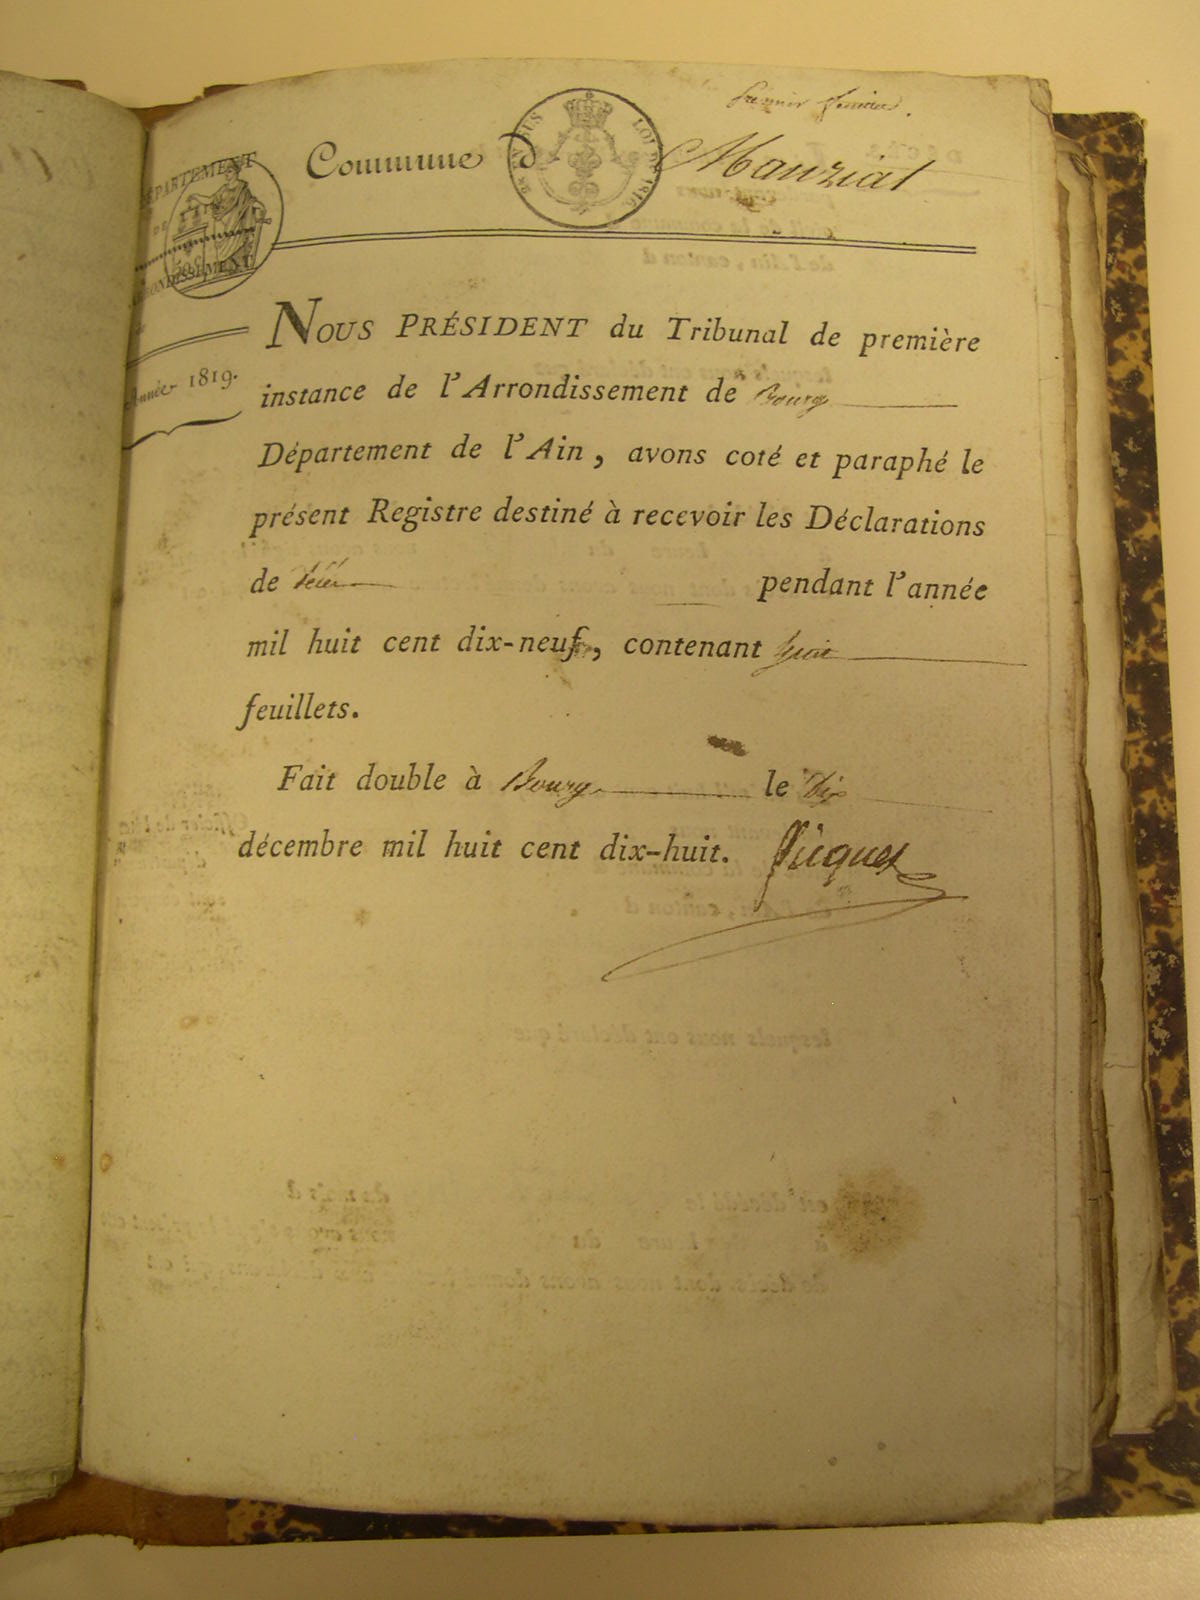 premier feuillet.
Commune d Manziat
DÉPARTEMENT
DE
ARRONDISSEMENT
Année 1819.
NOUS PRÉSIDENT du Tribunal de première
instance de l'Arrondissement de Bourg
Département de l'Ain, avons coté et paraphé le
présent Registre destiné à recevoir les Déclarations
de pendant l'année
mil huit cent dix-neuf, contenant
feuillets.
Fait double à Bourg le Dix
décembre mil huit cent dix-huit. Picquet